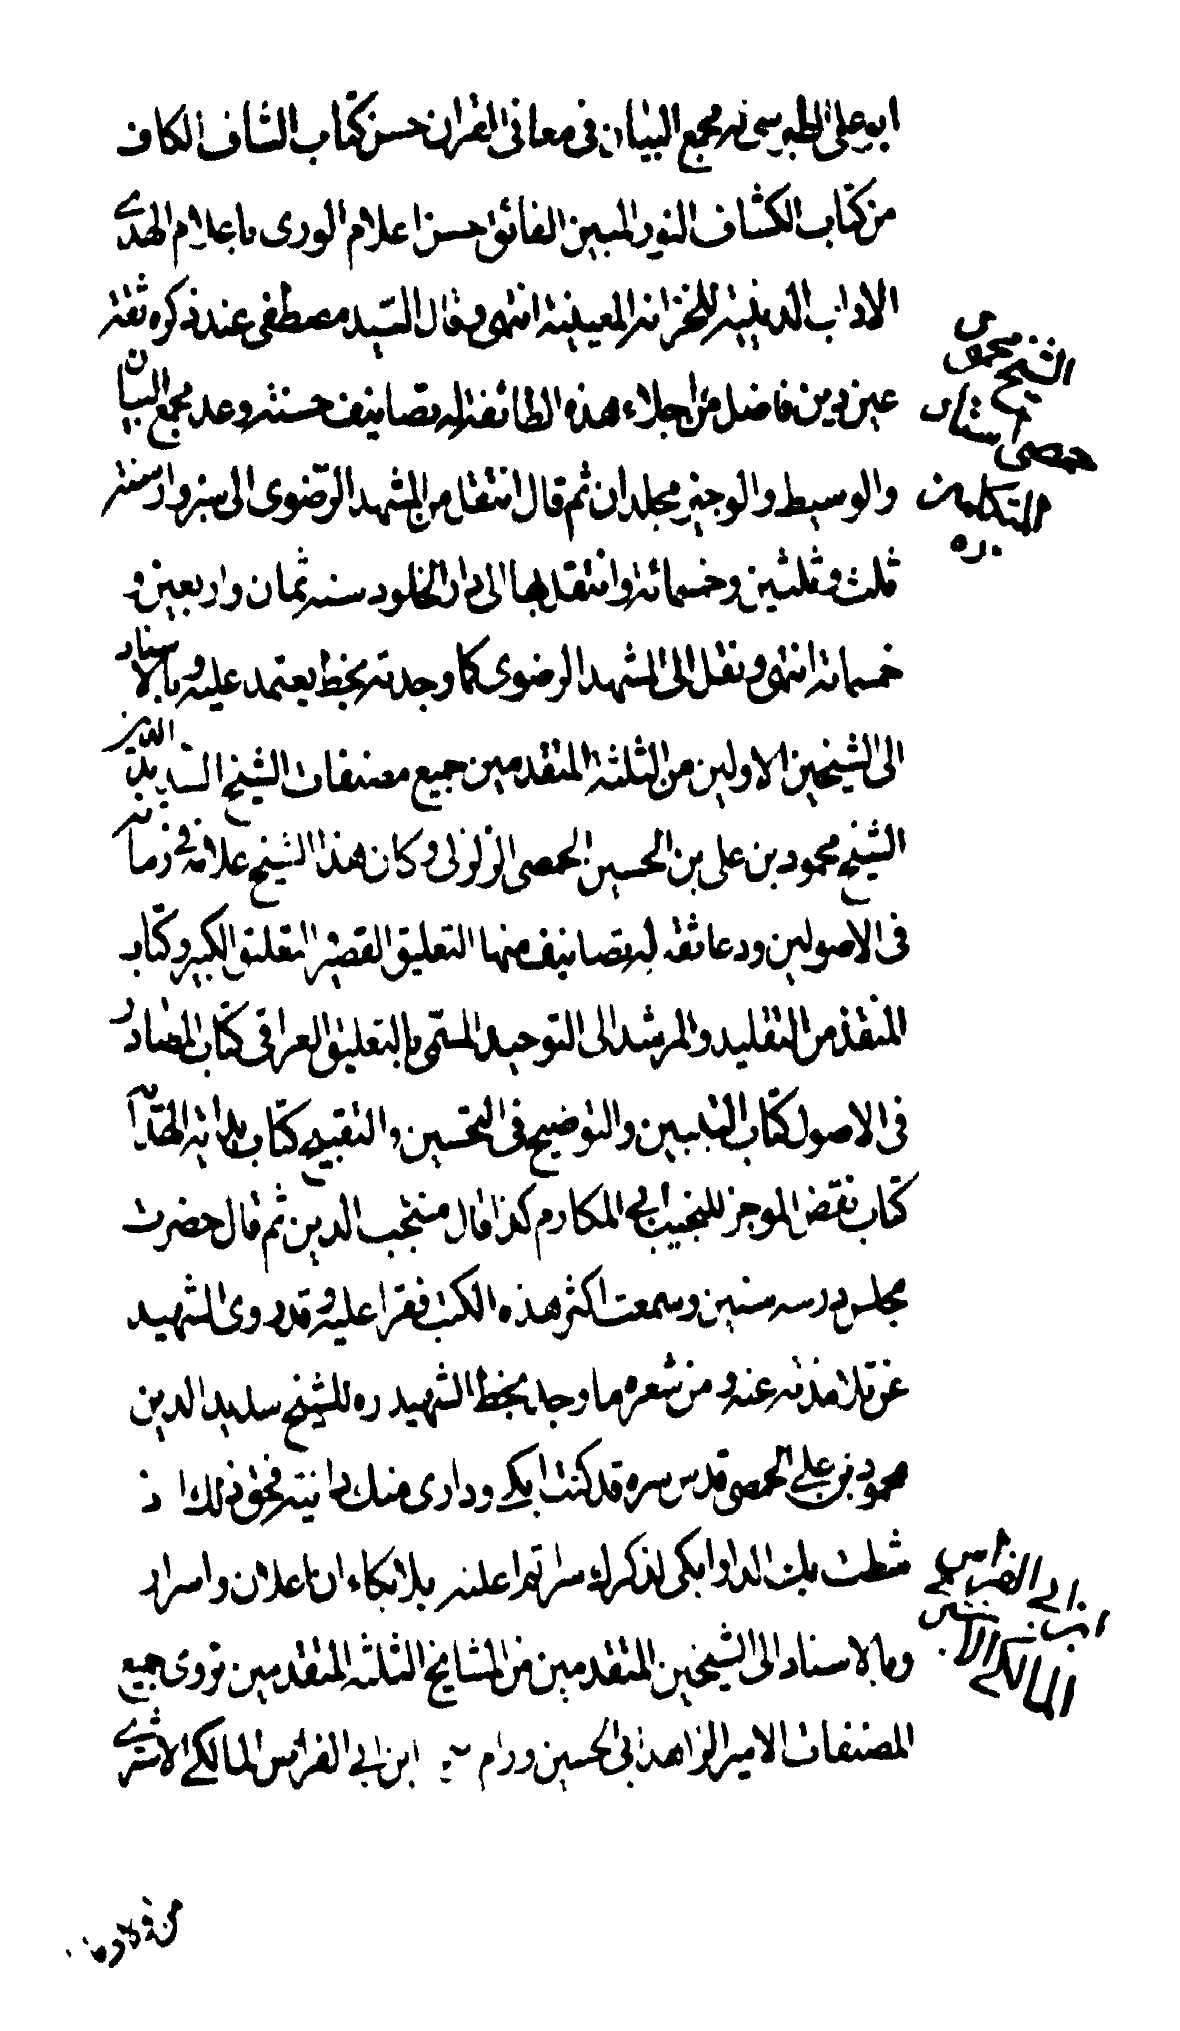 ابو علی الطبرسی له مجمع البیان فی معانی القران حسن کتاب الشاف الکاف
من کتاب الکشاف النور المبین الفائق حسن اعلام الوری باعلام الهدی
الاداب الدینیه للخزانه المعینیه انتهی وقال السید مصطفی عند ذکره ثقه
عین دین فاضل من اجلاء هذه الطائفة له تصانیف حسنة وعد مجمع البیان
والوسیط والوجیز مجلدان ثم قال انتقل من المشهد الرضوی الی سبزوار سنة
ثلث وثلثین وخمسمائة وانتقل بها الی دار الخلود سنه ثمان واربعین و
خمسمائة انتهی ونقل الی المشهد الرضوی کما وجدته بخط یعتمد علیه وبالاسناد
الی الشیخین الاولین من الثلثة المتقدمین جمیع مصنفات الشیخ السدید الدین
الشیخ محمود بن علی بن الحسین الحمصی الرازی وکان هذا الشیخ علامة فی زمانه
فی الاصولین ودعا ثقه له تصانیف منها التعلیق الصغیر التعلیق الکبیر وکتاب
المنقذ من التقلید والمرشد الی التوحید المسمی بالتعلیق العراقی کتاب المصادر
فی الاصول کتاب التبیین والتوضیح فی التحسین والتقبیح کتاب بدایة الهدایة
کتاب نقض الموجز للنجیب ابی المکارم کذا قال منتجب الدین ثم قال حضرت
مجلس درسه سنین وسمعت اکثر هذه الکتب فقرا علیه وقد روی الشهید
عن تلامذته عنه و من شعره ما وجد بخط الشهید ره للشیخ سدید الدین
محمود بن علی الحمصی قدس سره قد کنت ابکی وداری منک دانیة فحق ذلک اذ
شطت بک الدار ابکی لذکراک سرا ثم اعلنه فلا بکاء ان اعلان واسرار
وبالاسناد الی الشیخین المتقدمین من المشایخ الثلثه المتقدمین نروی جمیع
المصنفات الامیر الزاهد ابی الحسین ورام بن ابن ابی الفراس المالکی الاشتری
الشیخ محمود
حمصی استاد
المتکلمین
ره
ابن ابی الفراس
المالکی الاشتری